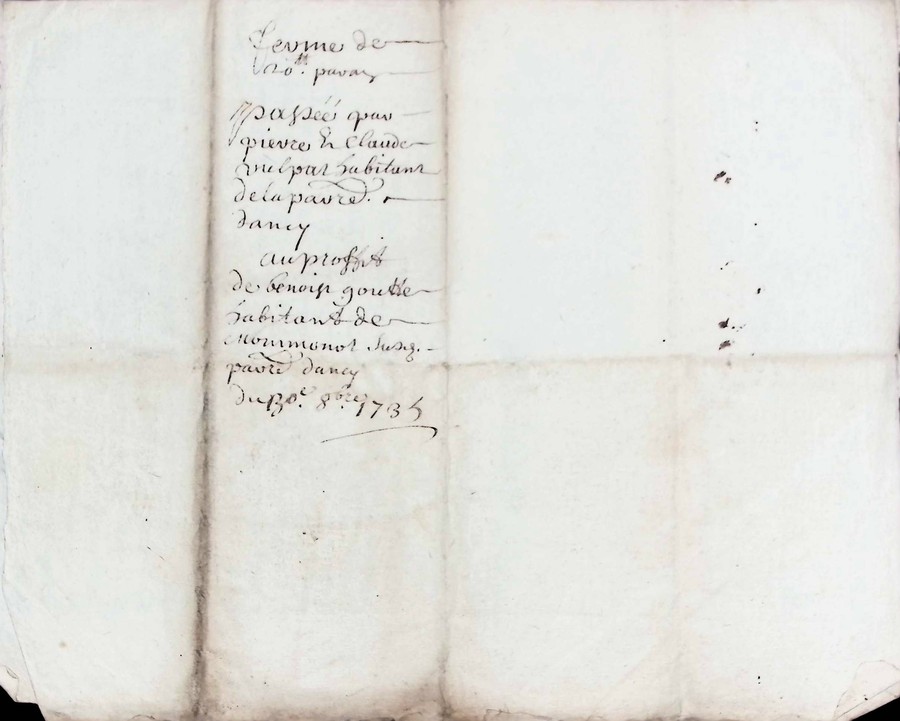 ferme de
20ᵗᵗ. par an
passée par
pierre Et Claude
vulpat habitant
de la parrᵉ.
dancy
au proffit
de benoist goutte
habitant de
susd.
parrᵉ dancy
du 30ᵉ. 8bre 1735